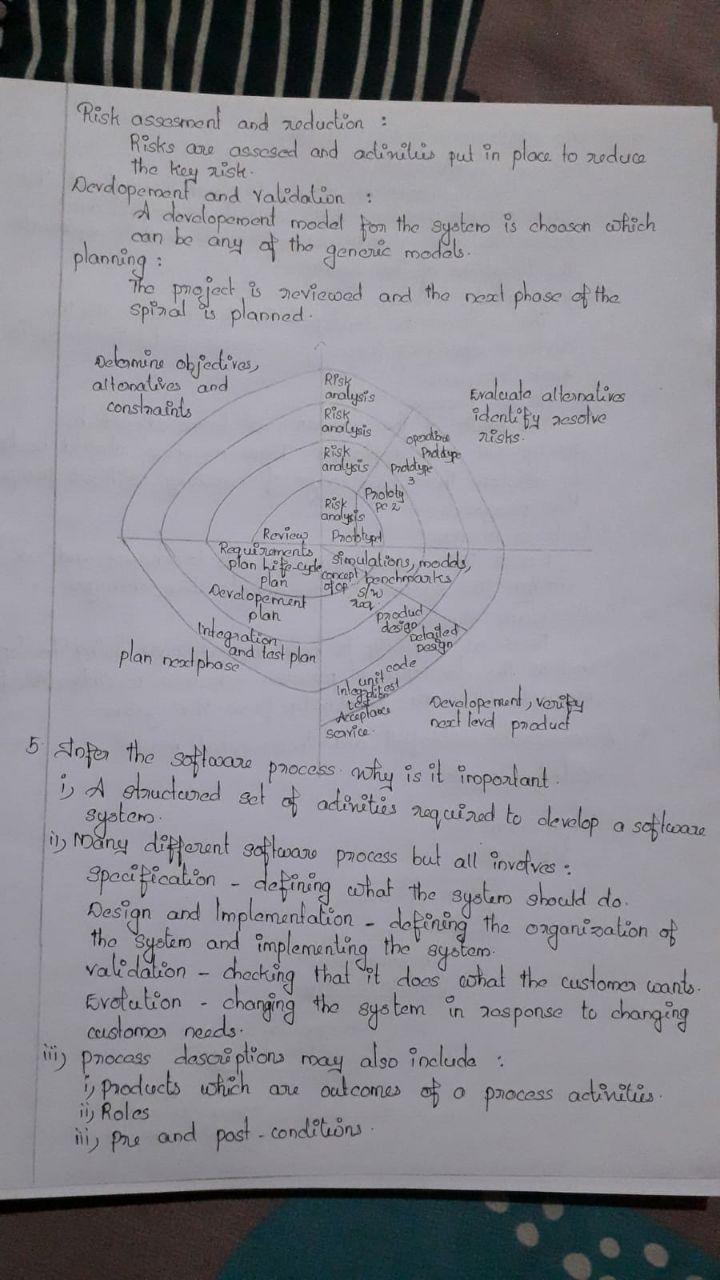 Risk assesment and reduction :
Risks are assesed and activities put in place to reduce
the key risk.
Developement and validation :
A developement model for the system is choosen which
can be any of the generic models.
planning :
The project is reviewed and the next phase of the
spiral is planned.
Determine objectives,
alternatives and
constraints
Evaluate alternatives
identify resolve
risks.
Risk
analysis
Risk
analysis
Risk
analysis
Risk
analysis
operational
Prototype
Prototype
3
Prototy
pe 2
Prototype1
Review
Requirements
plan life-cycle
plan
Developement
plan
Integration
and test plan
plan next phase
simulations, models,
benchmarks
concept
of op
s/w
req
product
design
Detailed
Design
code
unit
test
Integration
test
Acceptance
service.
Developement, verify
next level product
5. Infer the software process. why is it important.
i, A structured set of activities required to develop a software
system.
ii, Many different software process but all involves :
Specification - defining what the system should do.
Design and Implementation - defining the organization of
the system and implementing the system.
validation - checking that it does what the customer wants.
Evolution - changing the system in response to changing
customer needs.
iii, process descriptions may also include :
i, products which are outcomes of a process activities.
ii, Roles
iii, Pre and post-conditions.